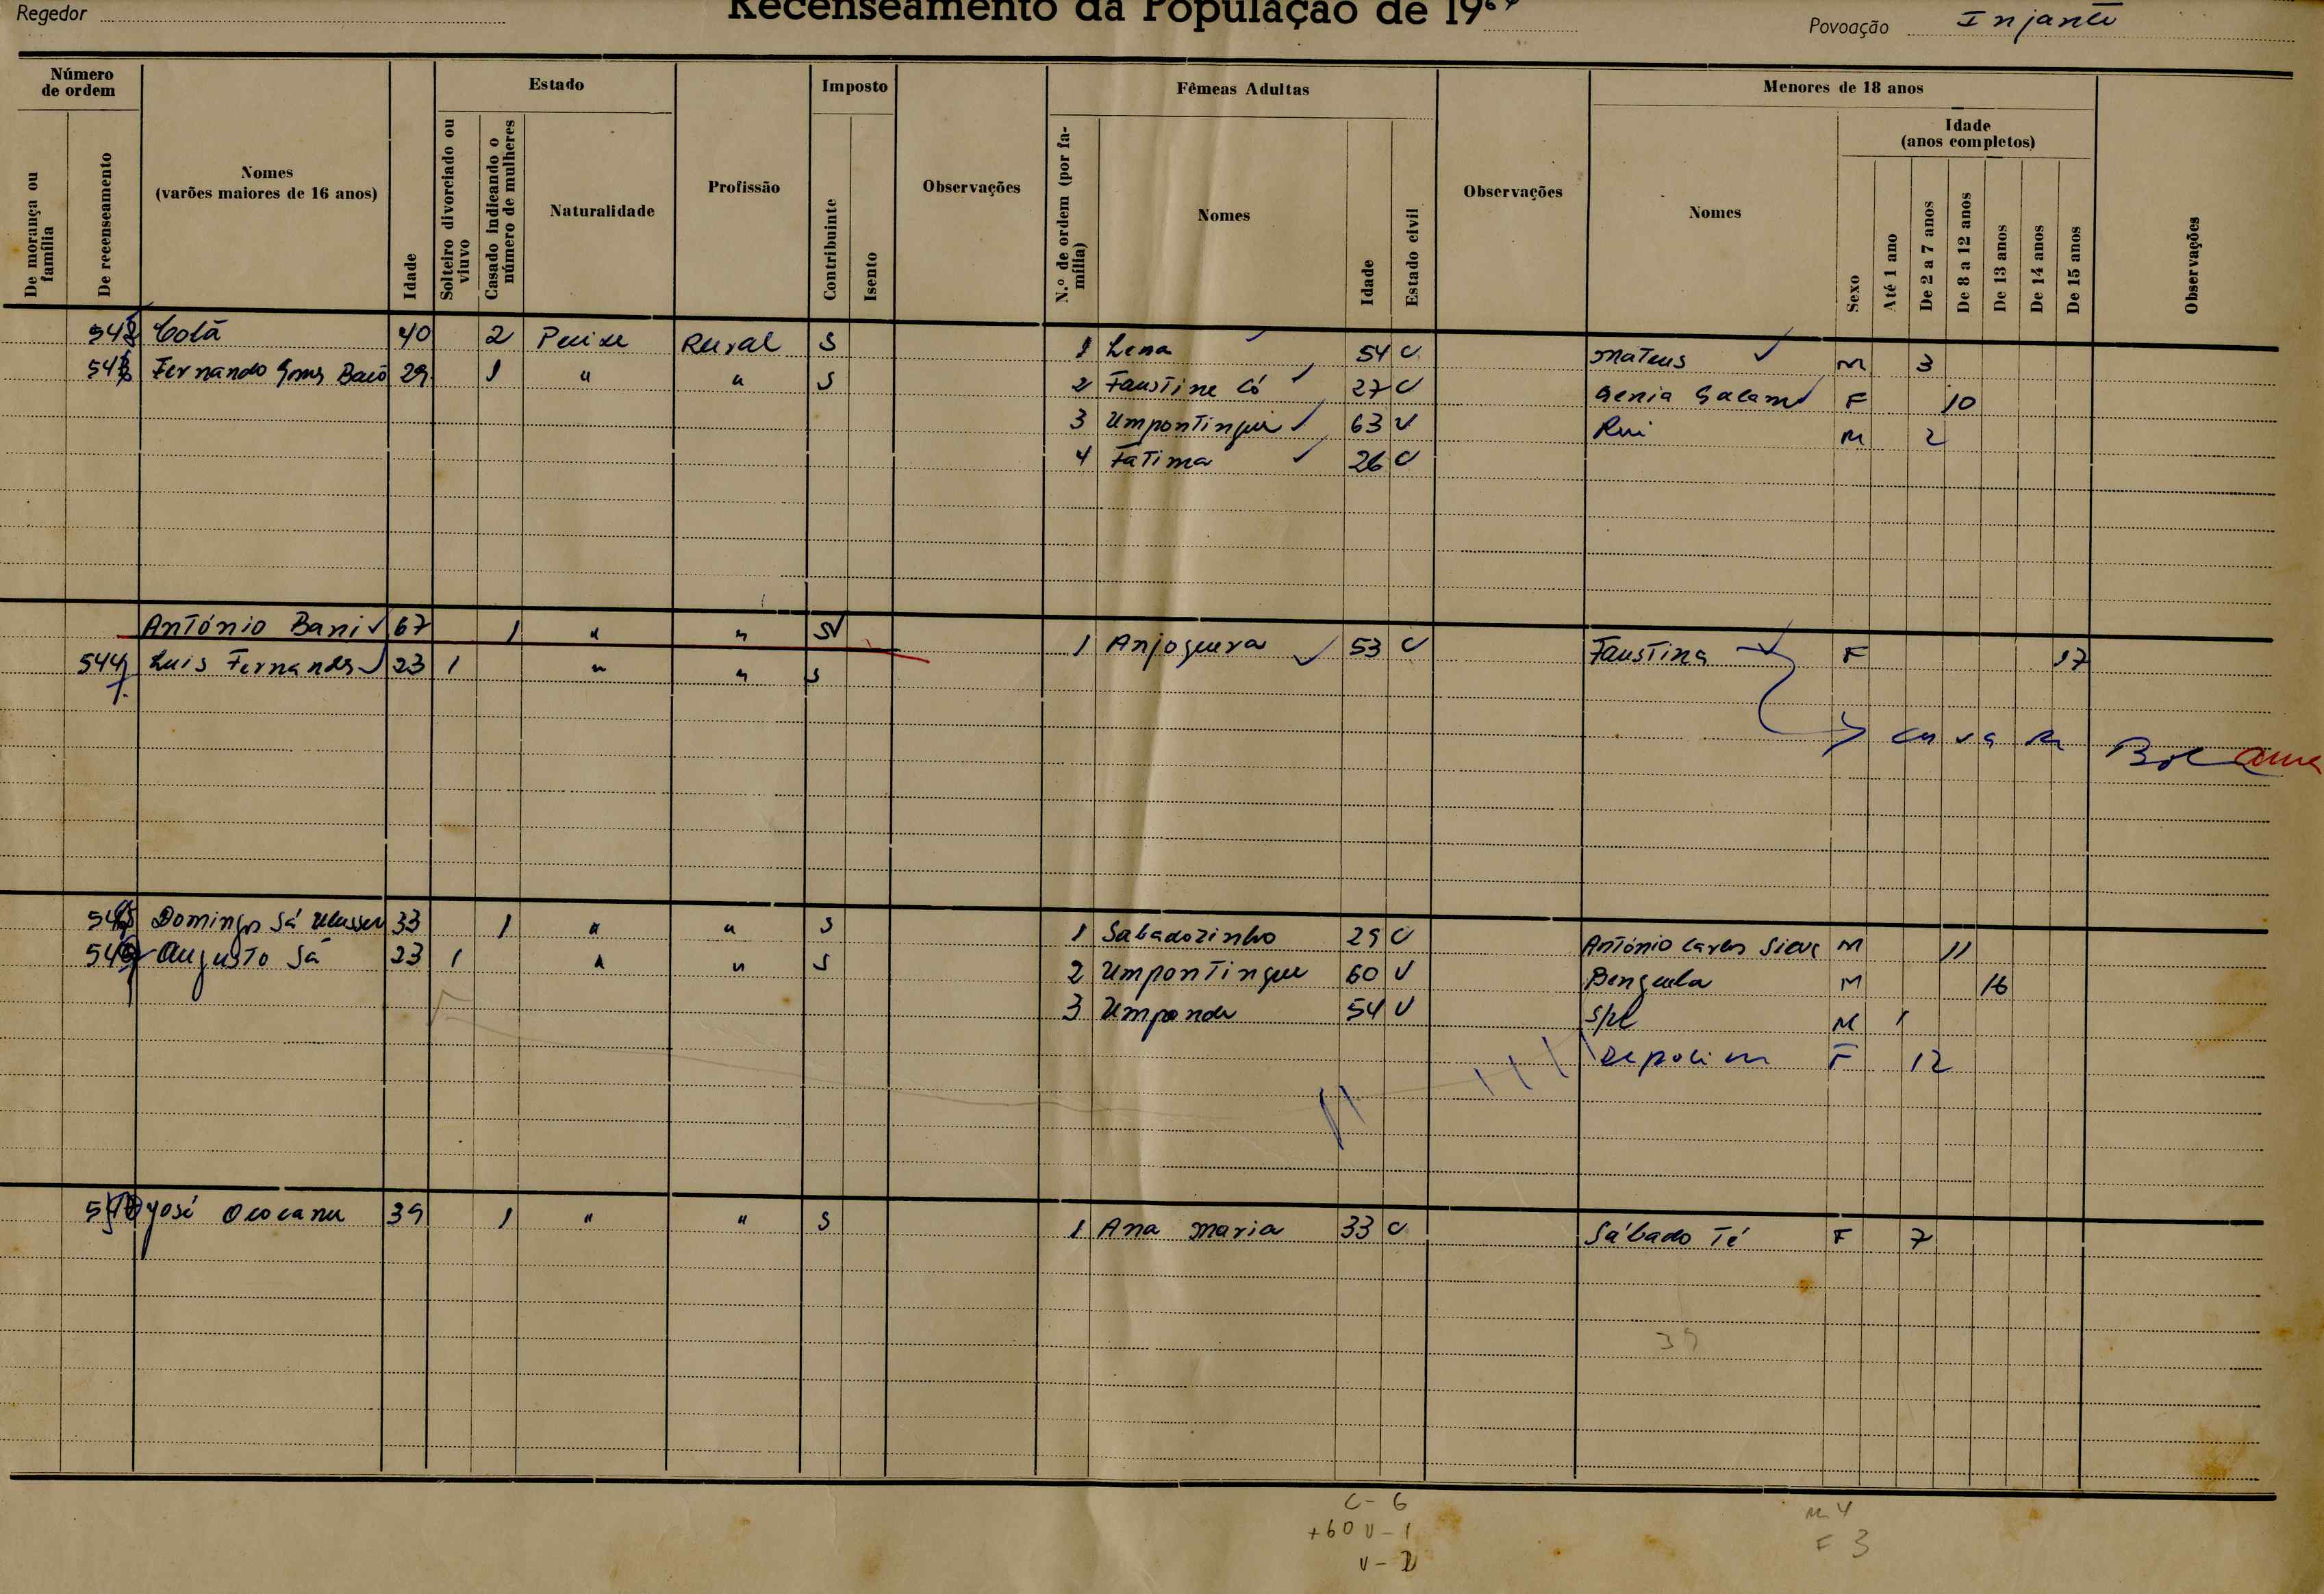 Regedor
Recenseamento da População de 19
Povoação Injante
Número de ordem
De morança ou família
De recenseamento
Nomes
(varões maiores de 16 anos)
Idade
Estado
Solteiro divorciado ou viuvo
Casado indicando o número de mulheres
Naturalidade
Profissão
Imposto
Contribuinte
Isento
Observações
Fêmeas Adultas
N.º de ordem (por família)
Nomes
Idade
Estado civil
Observações
Menores de 18 anos
Nomes
Sexo
Idade
(anos completos)
Até 1 ano
De 2 a 7 anos
De 8 a 12 anos
De 13 anos
De 14 anos
De 15 anos
Observações
Colã 40 2 Rural S 1 Lena 54 C Mateus M 3
Fernando 29 1 " " S 2 Faustine Có 27 C F 10
3 Umpontingui 63 V Rui M 2
4 Fatima 26 C
António Bani 67 1 " " S 1 Anjoguera 53 C Faustina F 17
544 Luis Fernandes 23 1 " " S
Bolama
Domingos Sá 33 1 " " S 1 Sabadozinho 29 C António M 11
Augusto Sá 23 1 " " S 2 Umpontingue 60 V Benguela M 16
3 Umponde 54 V M 1
F 12
José 39 1 " " S 1 Ana Maria 33 C Sábado Té F 7
39
C - 6
+60 V - 1
V - 2
M 4
F 3